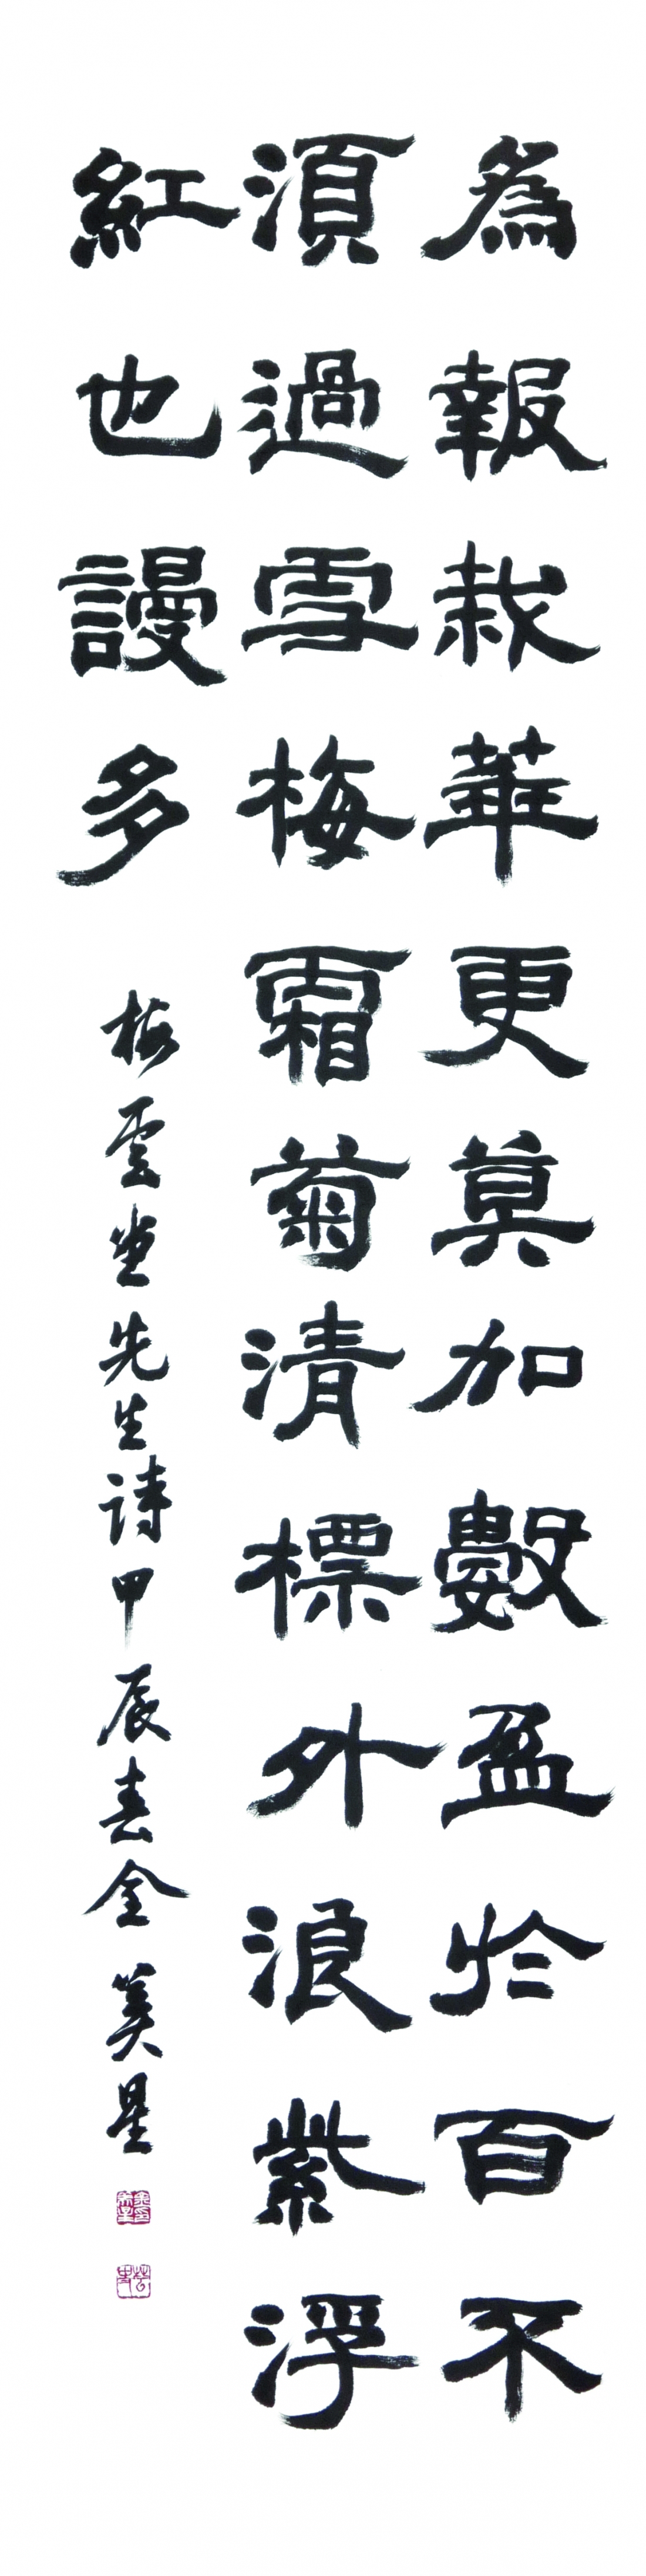 為報栽華更莫加數盈於百不
須過雪梅霜菊清標外浪紫浮
紅也謾多
梅雲堂先生詩甲辰春金美星